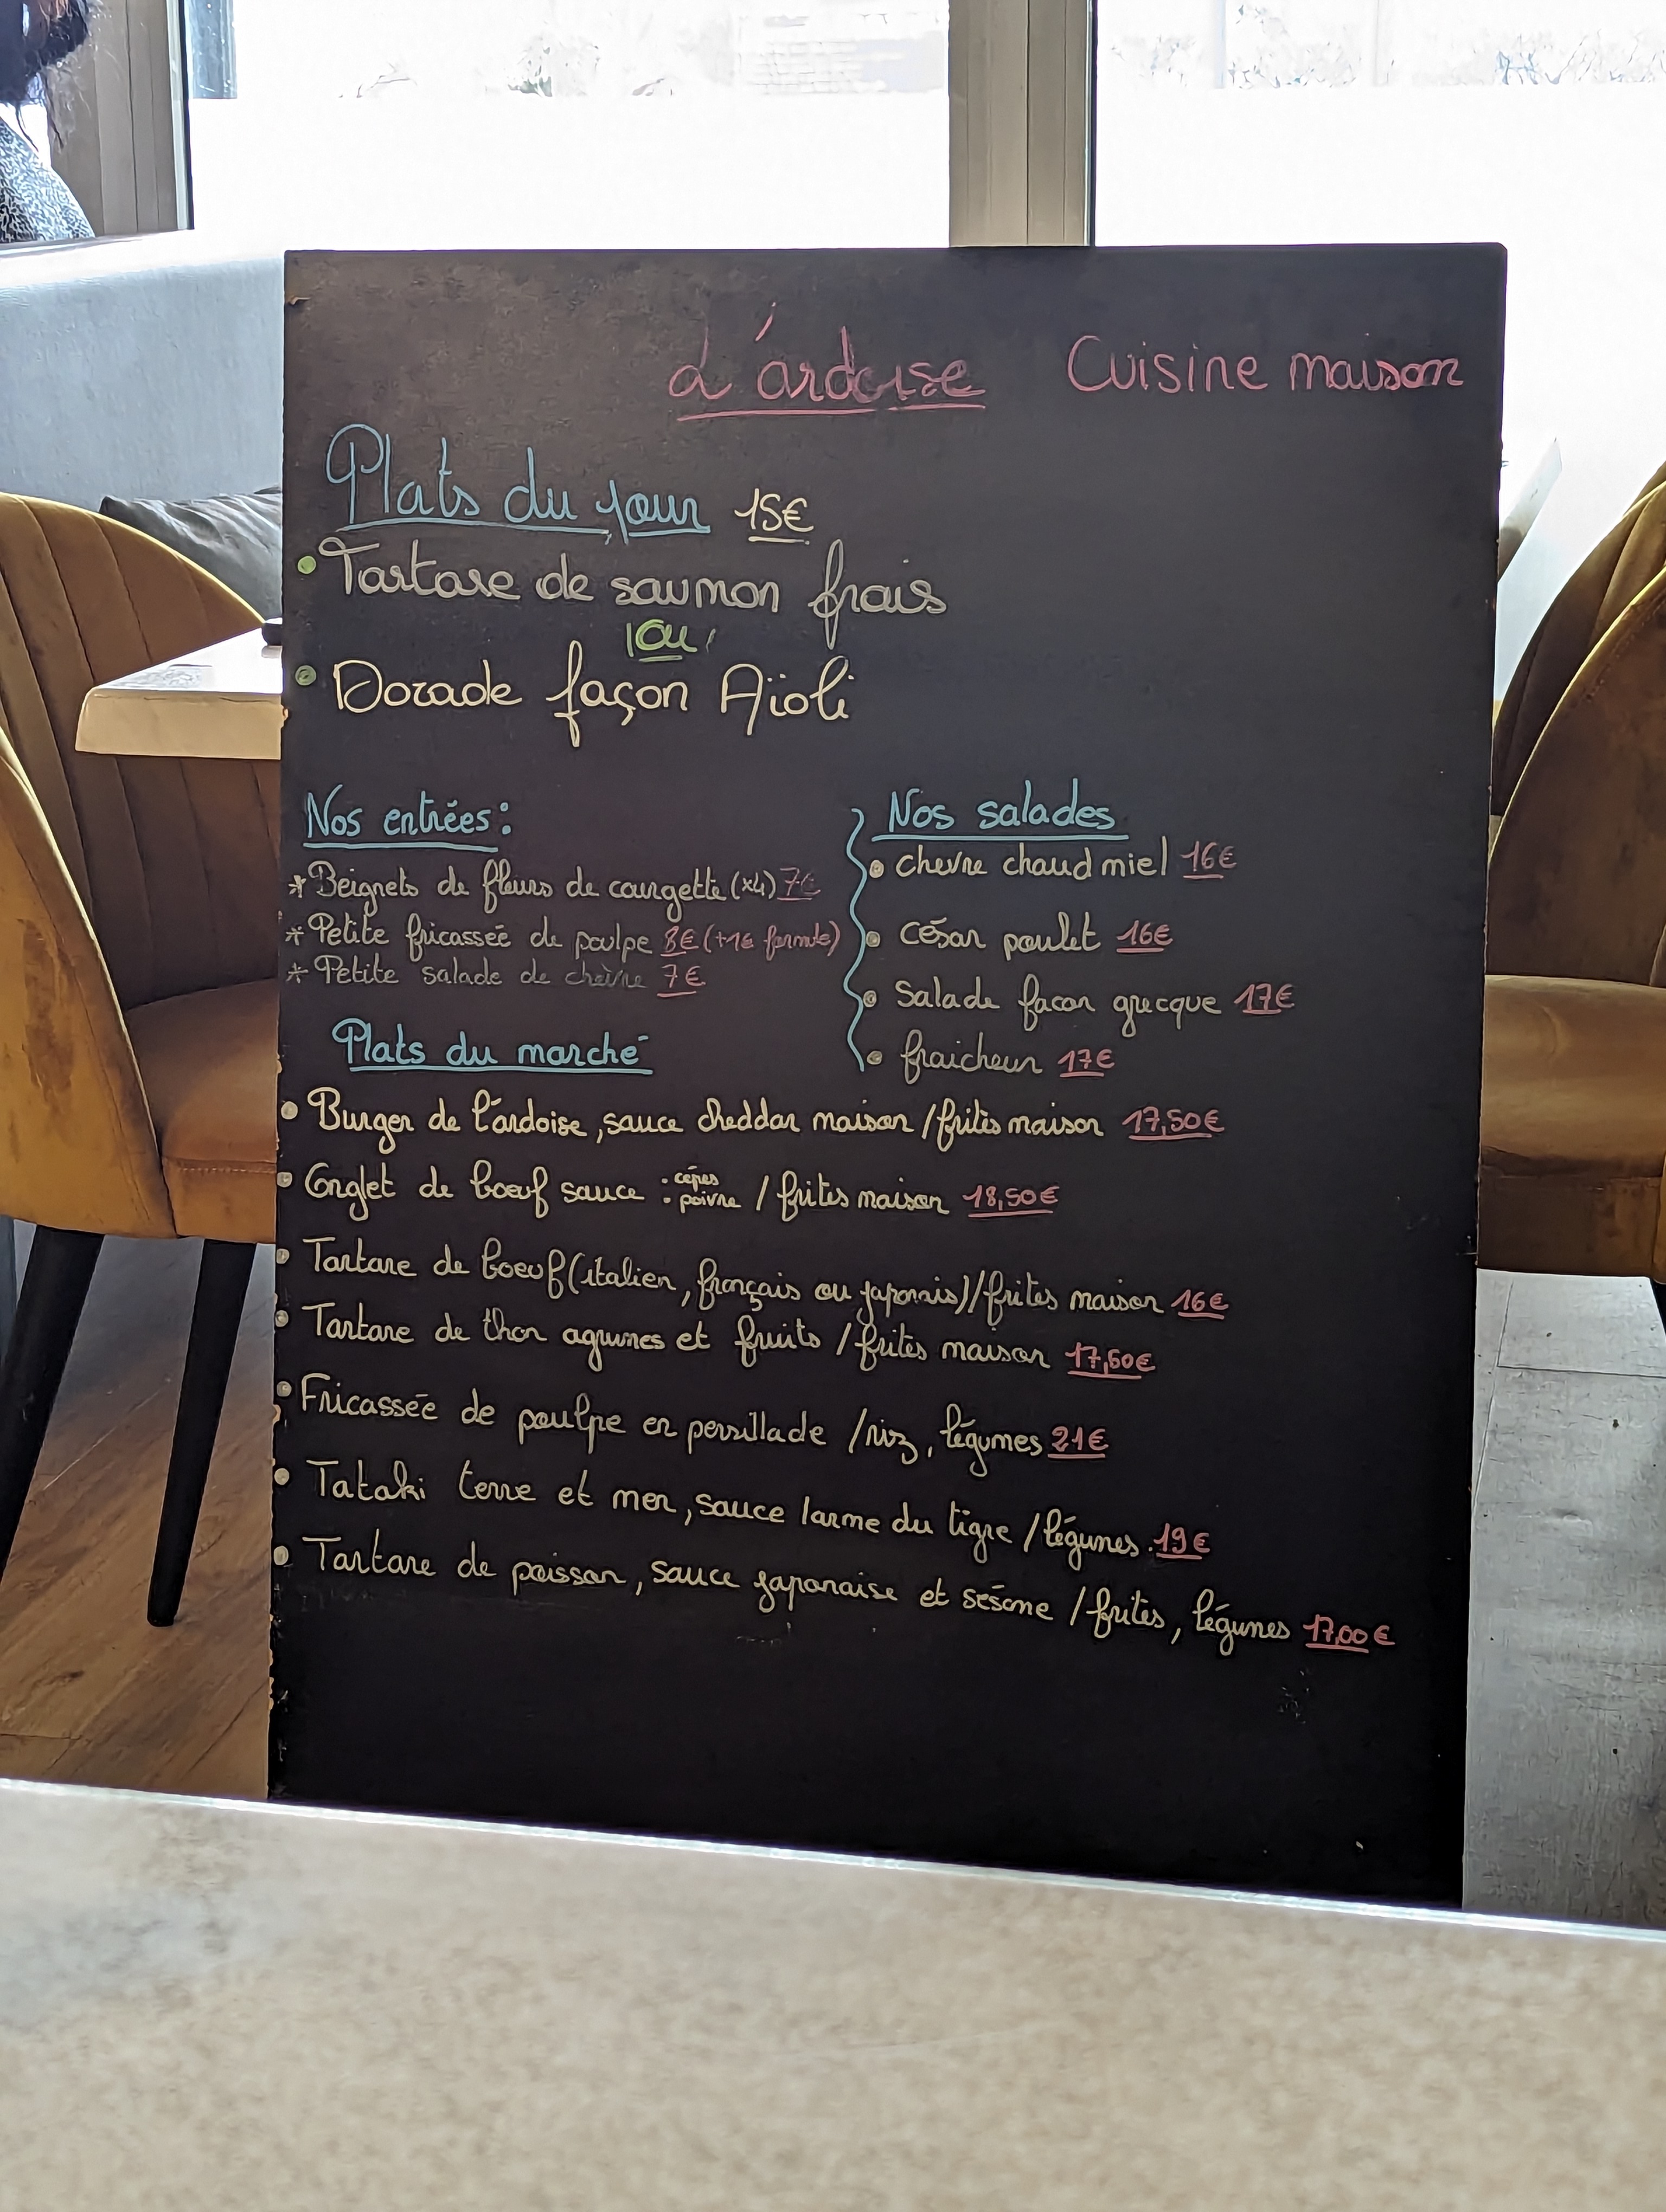 L'ardoise Cuisine maison
Plats du jour 15€
• Tartare de saumon frais
ou
• Dorade façon Aïoli
Nos entrées :
* Beignets de fleurs de courgette (x4) 7€
* Petite fricassée de poulpe 8€ (+1€ formule)
* Petite salade de chèvre 7€
Nos salades
• chevre chaud miel 16€
• césar poulet 16€
• Salade facon grecque 17€
• fraicheur 17€
Plats du marché
• Burger de l'ardoise, sauce cheddar maison / frites maison 17,50€
• Onglet de boeuf sauce : cépes : poivre / frites maison 18,50€
• Tartare de boeuf (italien, français ou japonais) / frites maison 16€
• Tartare de thon agrumes et fruits / frites maison 17,50€
• Fricassée de poulpe en persillade / riz, légumes 21€
• Tataki terre et mer, sauce larme du tigre / légumes. 19€
• Tartare de poisson, sauce japonaise et sésame / frites, légumes 17,00€